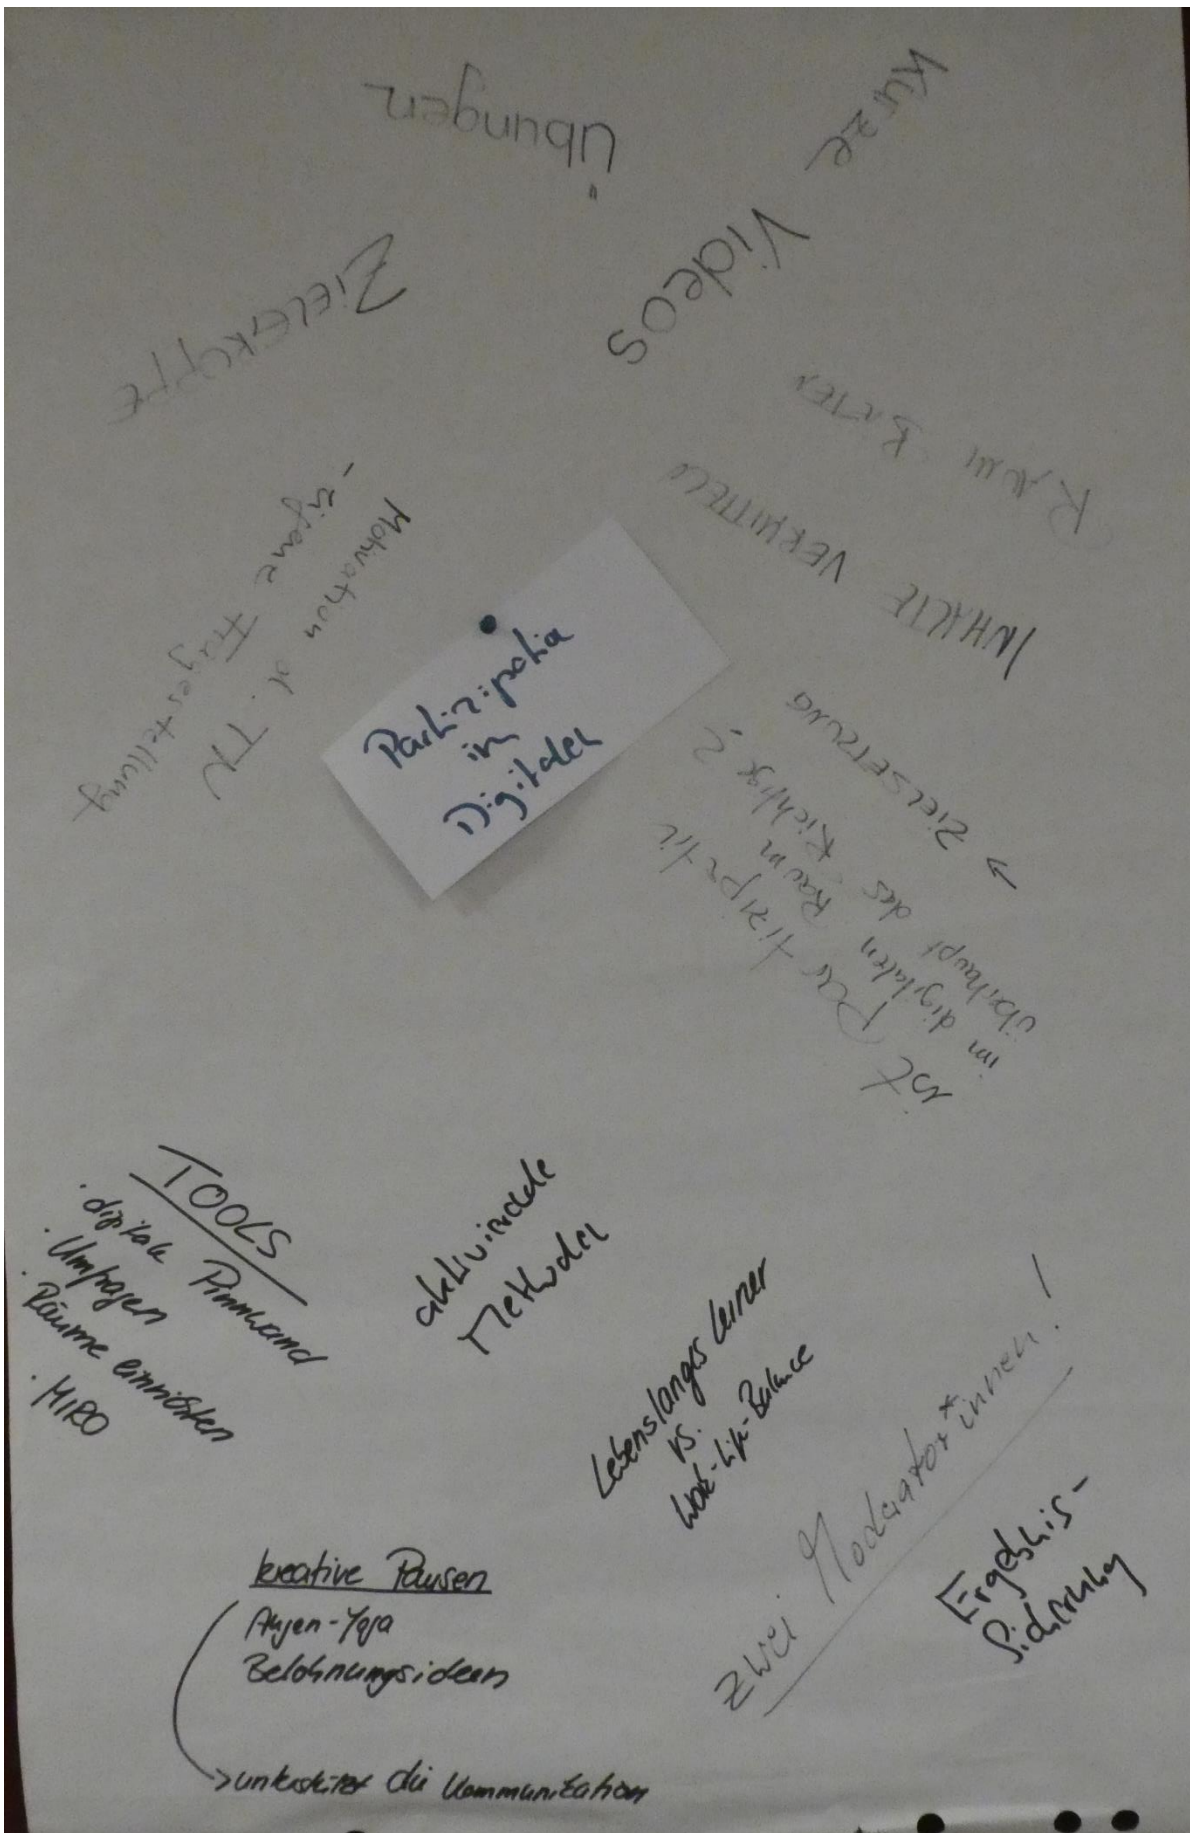 Übungen
Kurze
Videos
ZIELGRUPPE
RAUM BIETEN
INHALTE VERMITTELN
→ ZIELSETZUNG
Motivation d. TN
- eigene Fragestellung
Partizipation
im
Digitalen
ist Partizipation
im digitalen Raum
überhaupt das Richtige?
TOOLS
· digitale Pinnwand
· Umfragen
· Räume einrichten
· MIRO
aktivierende
Methoden
Lebenslanges Lernen
vs.
Work-Life-Balance
zwei Moderator*innen!
Ergebnis-
Sicherung
kreative Pausen
Augen-Yoga
Belohnungsideen
> unterstützt die Kommunikation